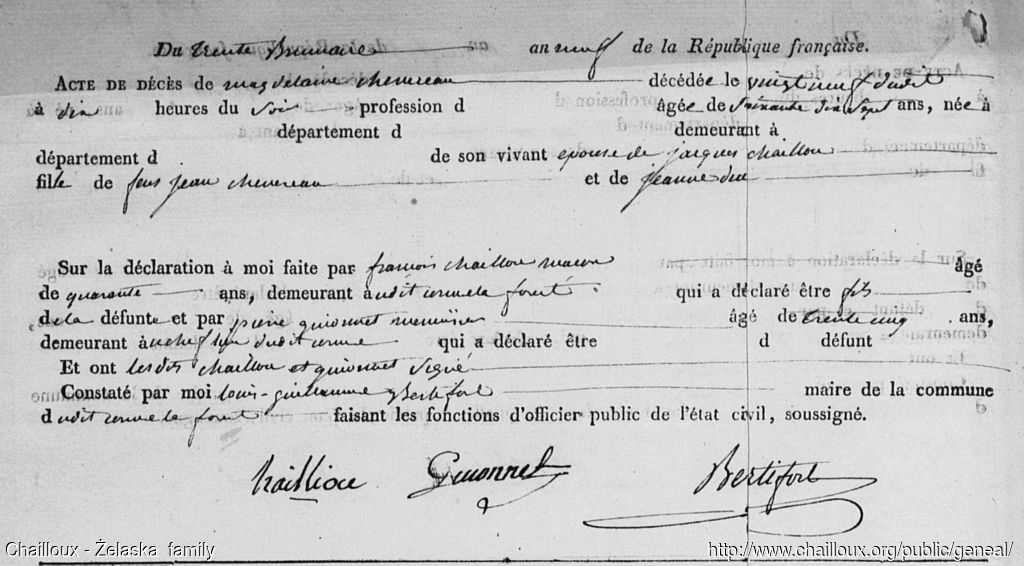 Du trente Brumaire an an neuf de la République française.
ACTE DE DÉCÈS de magdelaine chevereau décédée le vingt neuf dudit
à dix heures du Soir profession d âgée de Soixante dix Sept ans, née à
département d demeurant à
département d de son vivant epouse de jacques chaillou
fille de feus jean chevereau et de jeanne
Sur la déclaration à moi faite par francois chaillou macon âgé
de quarante ans, demeurant à udit la forêt qui a déclaré être fils
de la défunte et par pierre guionnet menuisier âgé de trente cinq ans,
demeurant à chef lieu dudit qui a déclaré être d défunt
Et ont lesdits chaillou et guionnet Signé
Constaté par moi louis-guillaume Bertifort maire de la commune
dudit la foret faisant les fonctions d'officier public de l'état civil, soussigné.
Guionnet Bertifort
Chailloux - Żelaska family http://www.chailloux.org/public/geneal/